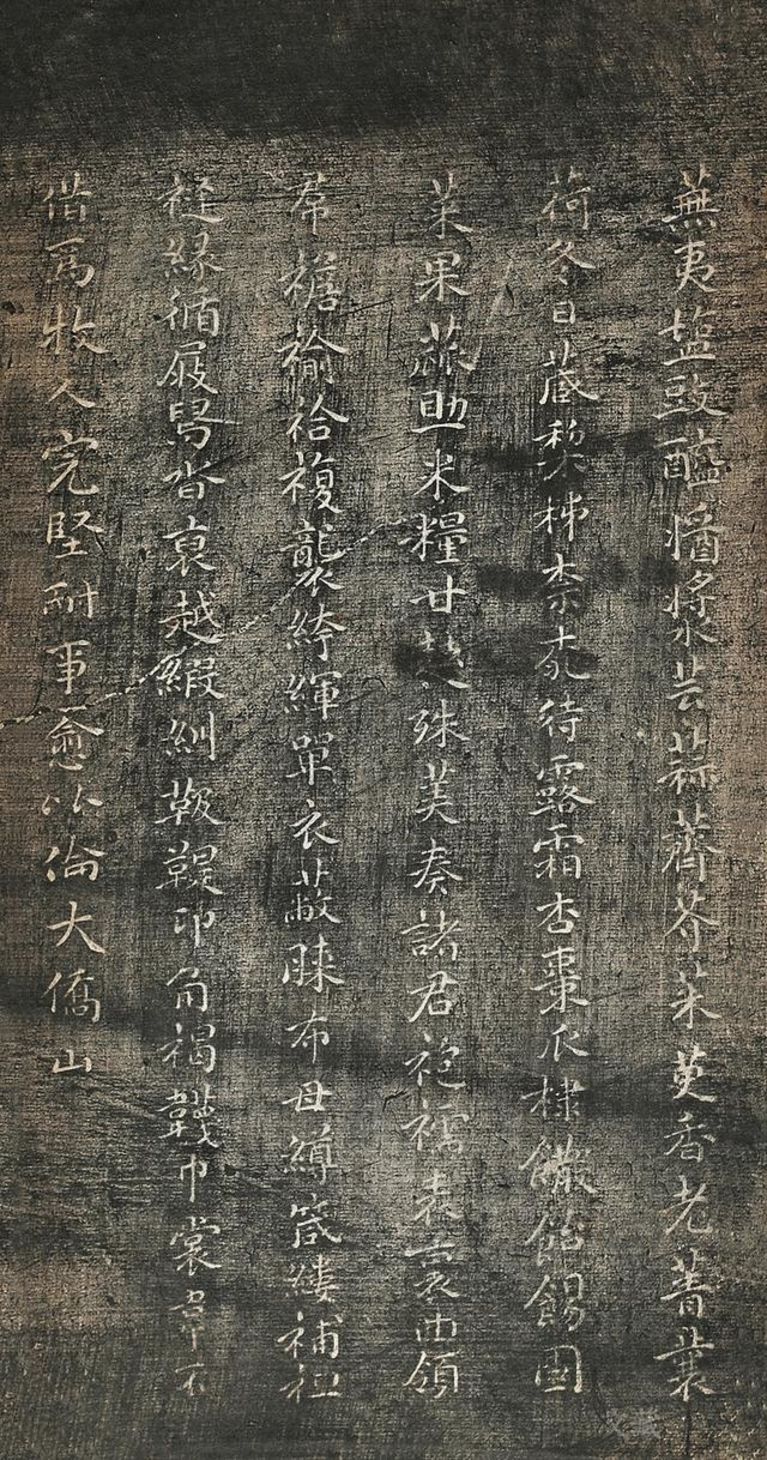 蕪夷塩豉醯醬漿芸蒜薺芥茱萸香老菁蘘
荷冬日藏梨柿柰桃待露霜杏棗瓜棣饊飴餳園
菜果蓏助米糧甘麩殊美奏諸君袍襦表裏曲領
帬襜褕袷複襲絝褌單衣蔽膝布母縛箴縷補袒
褫緣循屐舄沓裒越緞紃靸鞮卬角褐韤巾裳韋不
借為牧人完堅耐事愈比倫大僑山